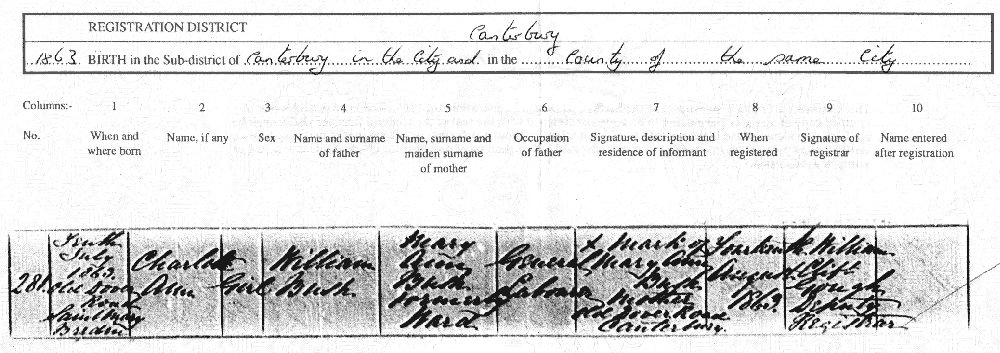 REGISTRATION DISTRICT Canterbury
1863 BIRTH in the Sub-district of Canterbury in the City and in the County of the same City
Columns:- 1 2 3 4 5 6 7 8 9 10
No. When and where born Name, if any Sex Name and surname of father Name, surname and maiden surname of mother Occupation of father Signature, description and residence of informant When registered Signature of registrar Name entered after registration
281
Tenth
July
1863
Old Dover
Road
Saint Mary
Bredin
Charlotte
Ann
Girl
William
Bush
Mary
Ann
Bush
formerly
Ward
General
Labourer
X Mark of
Mary Ann
Bush
Mother
Old Dover Road
Canterbury
August
1863
William
Gough
Deputy
Registrar